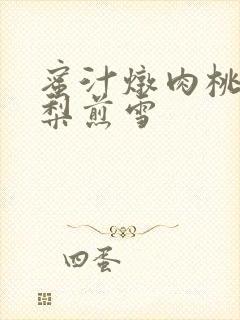 蜜汁燉肉桃
梨煎雪
四蛋